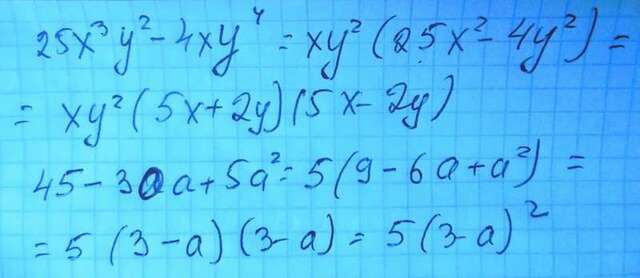 25x³y² - 4xy⁴ = xy² (25x² - 4y²) =
= xy² (5x + 2y)(5x - 2y)
45 - 30a + 5a² = 5(9 - 6a + a²) =
= 5 (3 - a) (3 - a) = 5(3 - a)²